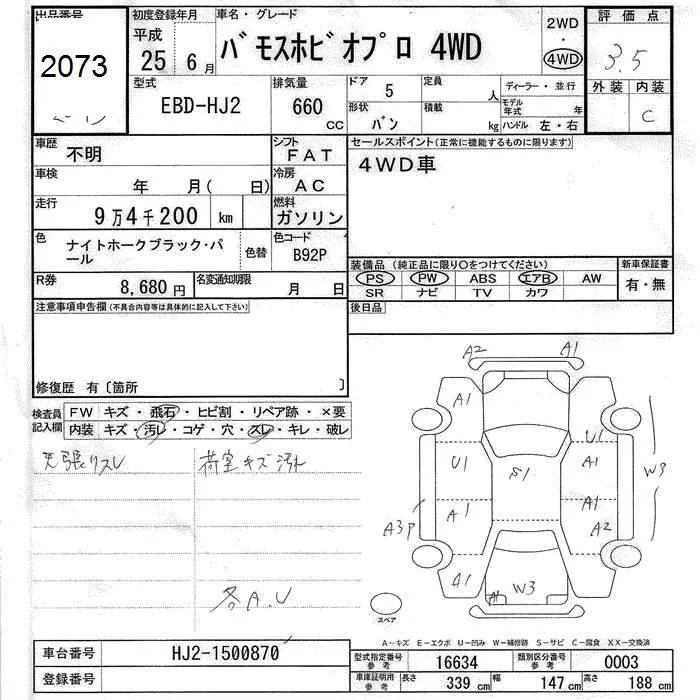 出品番号 初度登録年月 車名・グレード 評価点
2073 平成 25 6月 バモスホビオプロ 4WD 2WD・4WD 3.5
外装 内装
C
型式 EBD-HJ2 排気量 660 CC
ドア 5 定員 人 ディーラー・並行
形状 バン 積載 kg モデル年式 年 ハンドル 左・右
車歴 不明 シフト FAT
セールスポイント(正常に機能するものに限ります)
4WD車
車検 年 月( 日) 冷房 AC
走行 9万4千200 km 燃料 ガソリン
色 ナイトホークブラック・パール 色替 色コード B92P
装備品(純正品に限り○をつけてください) 新車保証書
PS PW ABS エアB AW 有・無
SR ナビ TV カワ
R券 8,680円 名変通知期限 月 日
後日品
注意事項申告欄(不具合内容等は具体的に記入して下さい)
修復歴 有〔箇所 〕
検査員記入欄
FW キズ・飛石・ヒビ割・リペア跡・×要
内装 キズ・汚レ・コゲ・穴・スレ・キレ・破レ
天張リスレ 荷室キズ汚れ
各A.U
A2 A1
A1 U1
U1 S1 A1 W3
A1 A1
A3P A2
A1 A1 W3
スペア
A─キズ E─エクボ U─凹み W─補修跡 S─サビ C─腐食 XX─交換済
車台番号 HJ2-1500870
登録番号
型式指定番号参考 16634 類別区分番号参考 0003
車庫証明用参考 長さ 339 cm 幅 147 cm 高さ 188 cm